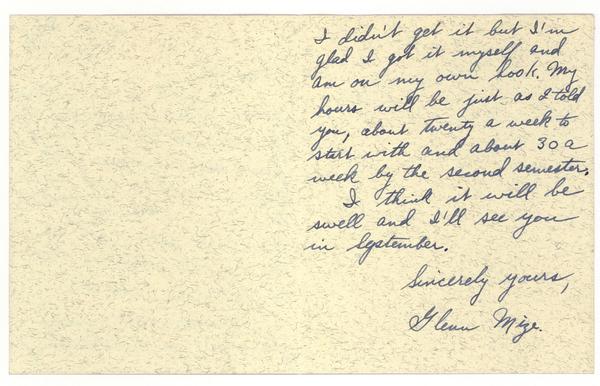 I didn't get it but I'm
glad I got it myself and
am on my own hook. My
hours will be just as I told
you, about twenty a week to
start with and about 30 a
week by the second semester.
I think it will be
swell and I'll see you
in September.
Sincerely yours,
Glenn Mize.